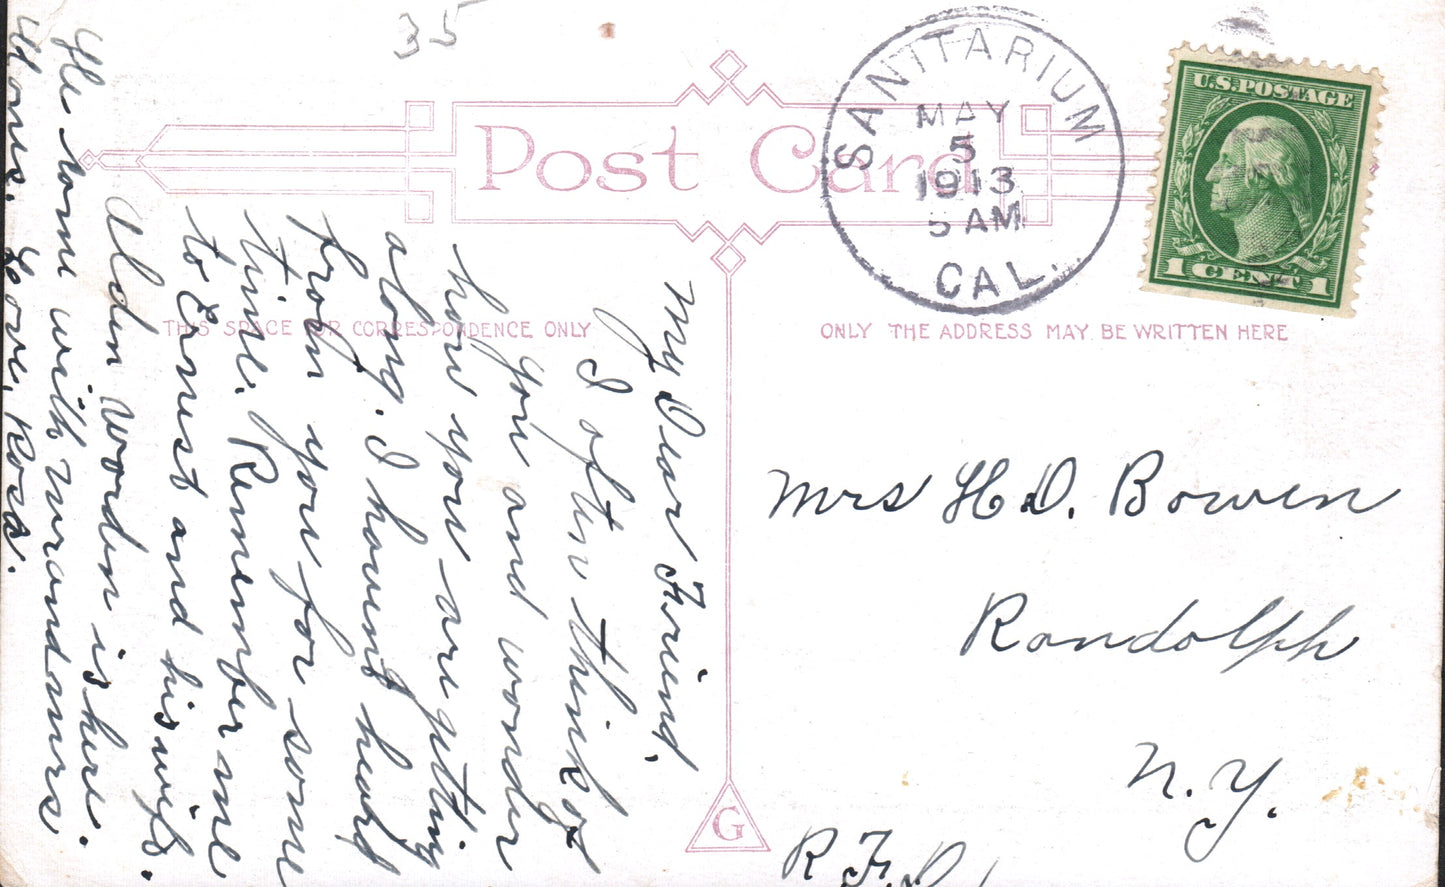 35
Post Card
SANITARIUM
MAY
5
1913
5 AM
CAL.
U.S. POSTAGE
1 CENT 1
THIS SPACE FOR CORRESPONDENCE ONLY
ONLY THE ADDRESS MAY BE WRITTEN HERE
My Dear Friend,
I often think of
you and wonder
how you are getting
along. I havent heard
from you for some
time. Remember me
to Ernest and his wife.
Aldin Wordin is here.
He come with
Love, Rosa.
Mrs H.D. Bowen
Randolph
N.Y.
R.F.D.
G